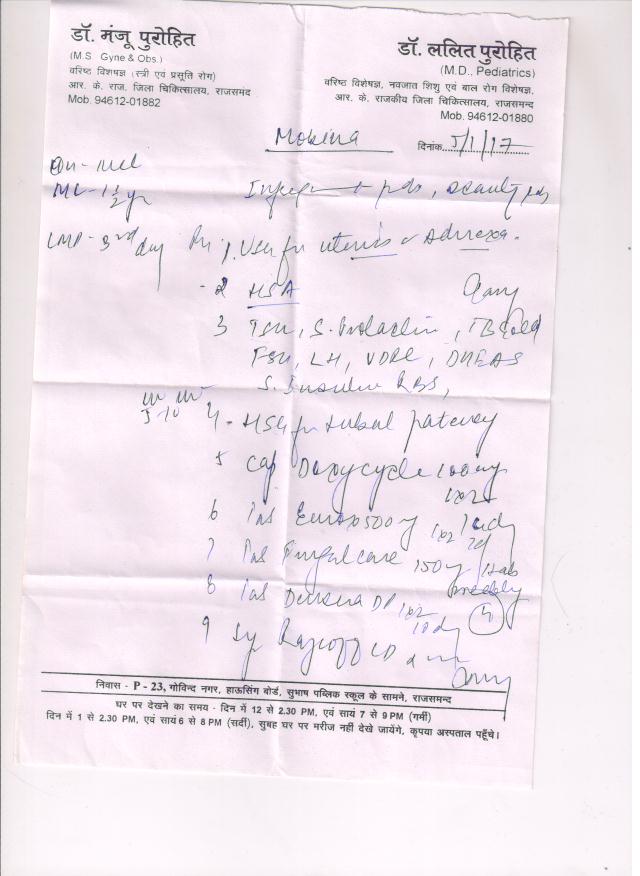 डॉ. मंजू पुरोहित
(M.S Gyne & Obs.)
वरिष्ठ विशेषज्ञ (स्त्री एवं प्रसूति रोग)
आर. के. राज. जिला चिकित्सालय, राजसमंद
Mob. 94612-01882
डॉ. ललित पुरोहित
(M.D., Pediatrics)
वरिष्ठ विशेषज्ञ, नवजात शिशु एवं बाल रोग विशेषज्ञ,
आर. के. राजकीय जिला चिकित्सालय, राजसमन्द
Mob. 94612-01880
दिनांक 5/1/17
ML - 1½ yr
LMP - 3rd day
1. USG for uterus & Adnexa.
2 HSA
3 TSH, S. Prolactin, TB Gold
FSH, LH, VDRL, DHEAS
S. Insulin RBS,
4 - HSG for tubal patency
5 Cap Doxycycle 100mg
1x2
6 Tab 500mg 1x2
7 Tab Fungal care 150mg 1 tab
weekly
8 Tab DP 1x2
10 dy
9 Sy
निवास - P - 23, गोविन्द नगर, हाऊसिंग बोर्ड, सुभाष पब्लिक स्कूल के सामने, राजसमन्द
घर पर देखने का समय - दिन में 12 से 2.30 PM, एवं सायं 7 से 9 PM (गर्मी)
दिन में 1 से 2.30 PM, एवं सायं 6 से 8 PM (सर्दी), सुबह घर पर मरीज नहीं देखे जायेंगे, कृपया अस्पताल पहूँचे।